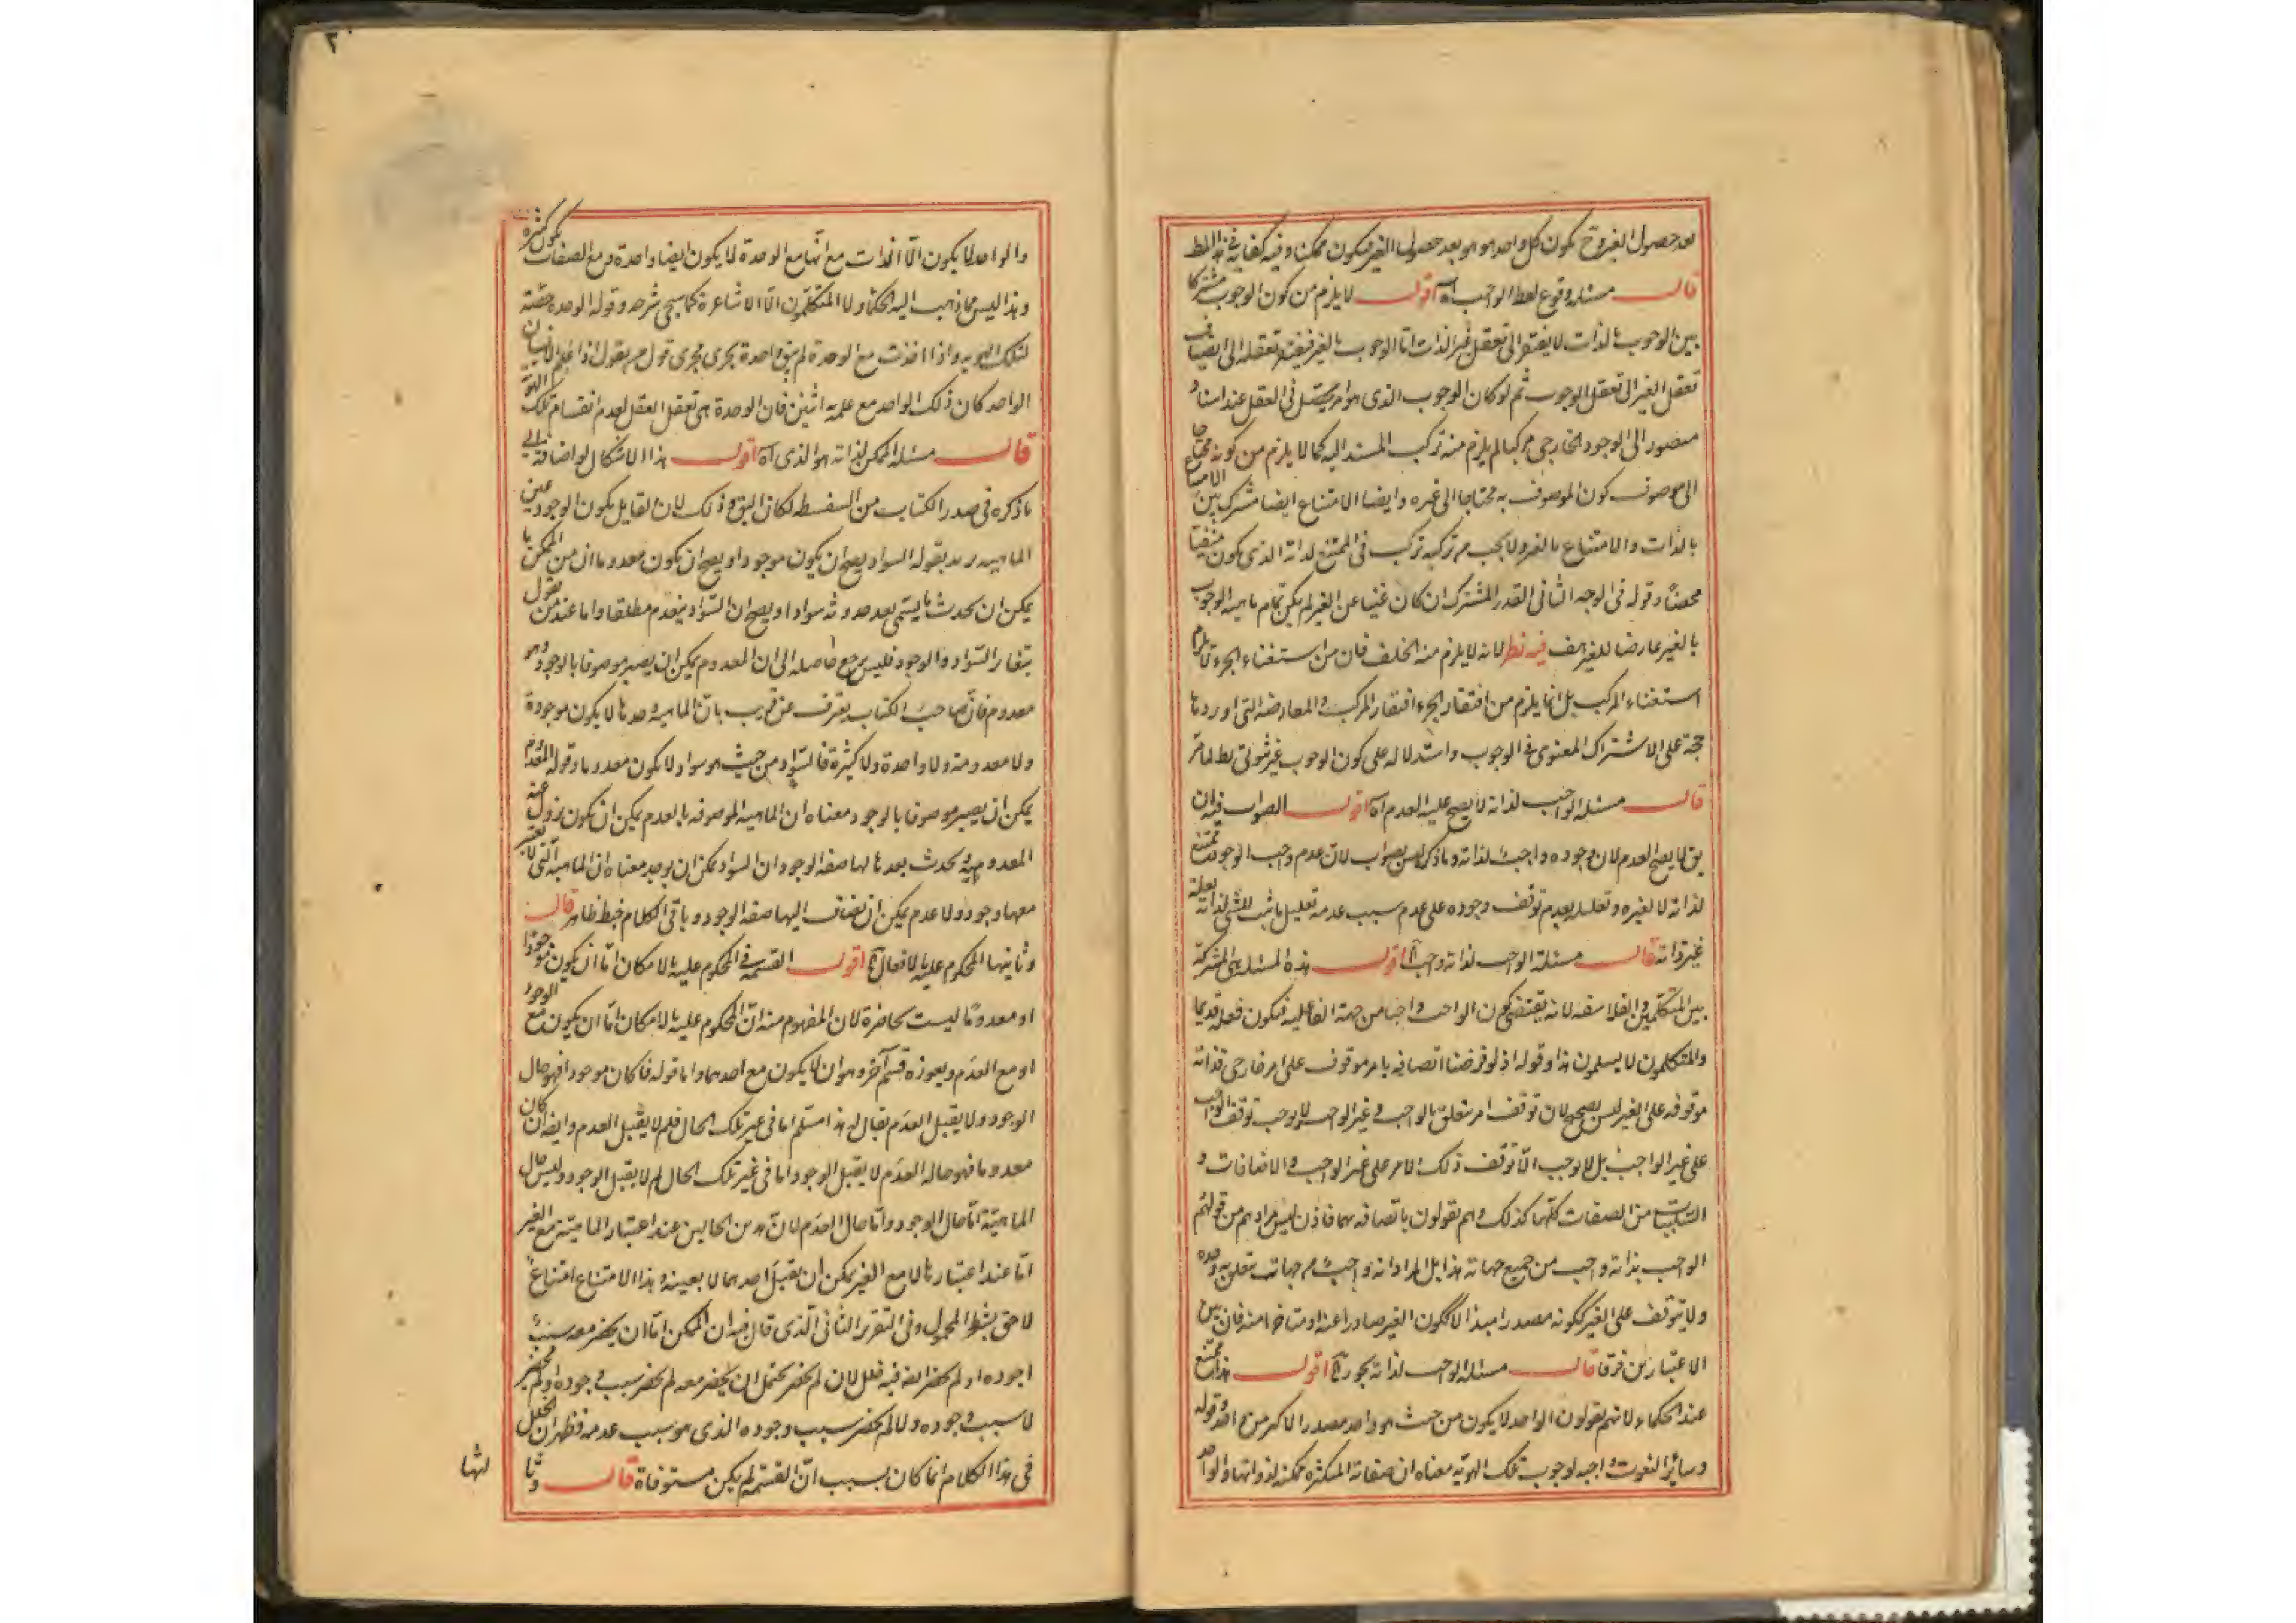 بعد حصول الغير وح يكون كل واحد هو هو بعد حصول الغير فيكون ممكنا وفيه كفاية في هذا المط
قال مسئلة وقوع لفظ الواجب اه اقول لا يلزم من كون الوجوب مشتركا
بين الوجوب بالذات لا يفتقر الى تعقل غير الذات اما الوجوب بالغير فيفتقر تعقله الى انضياف
تعقل الغير الى تعقل الوجوب ثم لو كان الوجوب الذي هو امر يحصل في العقل عند اسناد
متصور الى الوجود الخارجي مركبا لم يلزم منه تركب المسند اليه كما لا يلزم من كونه محتاجا
الى موصوف كون الموصوف به محتاجا الى غيره وايضا الامتناع ايضا مشترك بين الامتناع
بالذات والامتناع بالغير ولا يجب من تركبه تركب في الممتنع لذاته الذي يكون منفيا
محضا وقوله في الوجه الثاني القدر المشترك ان كان غنيا عن الغير لم يكن تمام ماهية الوجوب
بالغير عارضا للغير هف فيه نظر لانه لا يلزم منه الخلف فان من استغناء الجزء لا يلزم
استغناء المركب بل انما يلزم من افتقار الجزء افتقار المركب والمعارضة التي اوردها
حجة على الاشتراك المعنوي في الوجوب واستدلاله على كون الوجوب غير ثبوتي بط لما مر
قال مسئلة الواجب لذاته لا يصح عليه العدم اه اقول الصواب فيه ان
يق لا يصح العدم لان وجوده واجب لذاته وما ذكره ليس بصواب لان عدم واجب الوجود ممتنع
لذاته لا لغيره وتعليله بعدم توقف وجوده على عدم سبب عدمه تعليل ما ثبت للشئ لذاته بعلة
غير ذاته قال مسئلة الواجب لذاته واجب اه اقول هذه المسئلة هي المشتركة
بين المتكلمين والفلاسفة لانه يقتضي كون الواحب واجبا من جهة الفاعلية فيكون فعله قديما
والمتكلمون لا يسلمون هذا وقوله اذ لو فرضنا اتصافه بامر موقوف على امر خارجي فذاته
موقوفة على الغير ليس بصحيح لان توقف امر متعلق بالواجب وغير الواجب لا يوجب توقف الواجب
على غير الواجب بل لا يوجب الا توقف ذلك الامر على غير الواجب والاضافات و
السلبيات من الصفات كلها كذلك وهم يقولون باتصافه بهما فاذن ليس مرادهم من قولهم
الواجب بذاته واجب من جميع جهاته هذا بل المراد انه واجب من جهات تتعلق به وحده
ولا يتوقف على الغير ككونه مصدرا مبدا لا ككون الغير صادرا عنه او متاخرا منه فان بين
الاعتبارين فرقا قال مسئلة الواجب لذاته يجوز اه اقول هذا ممتنع
عند الحكماء لانهم يقولون الواحد لا يكون من حيث هو واحد مصدرا لاكثر من واحد وقوله
وسائر النعوت واجبة لوجوب تلك الهوية معناه ان صفاته المتكثرة ممكنة لذواتها والواحد
والواحد لا يكون الا الذات مع انها مع الوحدة لا يكون ايضا واحدة ومع الصفات يكون كثيرة
وهذا ليس مما ذهب اليه الحكما ولا المتكلمون الا الاشاعرة كما سيجئ شرحه وقوله الوحدة حصته
لتلك الهوية واذا اخذت مع الوحدة لم تبق واحدة يجري مجرى قول من يقول اذا علم الانسان
الواحد كان ذلك الواحد مع علمه اثنين فان الوحدة هي تعقل العقل لعدم انقسام تلك الهوية
قال مسئلة الممكن لذاته هو الذي اه اقول هذا الاشكال لو اضافه الى
ما ذكره في صدر الكتاب من السفسطة لكان اليق وذلك لان القايل بكون الوجود عين
الماهية يريد بقوله السواد يصح ان يكون موجودا ويصح ان يكون معدوما ان من الممكن ما
يمكن ان يحدث ما يسمى بعد حدوثه سوادا ويصح ان السواد ينعدم مطلقا واما عند من يقول
بتغاير السواد والوجود فليس يرجع حاصله الى ان المعدوم يمكن ان يصير موصوفا بالوجود وهو
معدوم فان صاحب الكتاب يعترف عن قريب بان الماهية وحدها لا يكون موجودة
ولا معدومة ولا واحدة ولا كثيرة فالسواد من حيث هو سواد لا يكون معدوما وقوله المعدوم
يمكن ان يصير موصوفا بالوجود معناه ان الماهية الموصوفة بالعدم يمكن ان يكون يزول عنه
المعدومية يحدث بعدها لها صفة الوجود ان السواد يمكن ان يوجد معناه ان الماهية التي لا يعتبر
معها وجود ولا عدم يمكن ان يضاف اليها صفة الوجود وباقي الكلام خبط ظاهر قال
وثانيها المحكوم عليه بالامكان اه اقول القسمة في المحكوم عليه بالامكان اما ان يكون موجودا
او معدوما ليست بحاضرة لان المفهوم منه ان المحكوم عليه بالامكان اما ان يكون مع الوجود
او مع العدم ويعوزه قسم آخر وهو ان لا يكون مع احدهما واما قوله فا كان موجودا فهو حال
الوجود ولا يقبل العدم يقال له هذا مسلم اما في غير تلك الحال فلم لا يقبل العدم وايضا ان كان
معدوما فهو حالة العدم لا يقبل الوجود اما في غير تلك الحال لم لا يقبل الوجود وليس حال
الماهية اما حال الوجود واما حال العدم لان هذين الحالين عند اعتبار الماهية مع الغير
اما عند اعتبارها لا مع الغير يمكن ان يقبل احدهما لا بعينه وهذا الامتناع امتناع
لاحق بشرط المحمول وفي التقرير الثاني الذي قال فيه ان الممكن اما ان يحضر معه سبب
اجوده او لم يحضر ايضا فيه خلل لان لم يحضر يحتمل ان يحضر معه لم يحضر سبب وجوده او لم يحضر
لا سبب وجوده ولا لم يحضر سبب وجوده الذي هو سبب عدمه فظهر ان الخلل
في هذا الكلام انما كان بسبب ان القسمة لم يكن مستوفاة قال وثا
لثها